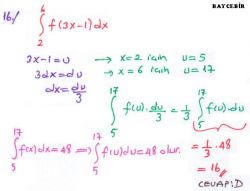 BAYCEBİR
16) ∫₂⁶ f(3x-1)dx
3x-1=u → x=2 için u=5
3dx=du → x=6 için u=17
dx=du/3
∫₅¹⁷ f(u).du/3 = 1/3 ∫₅¹⁷ f(u)du
∫₅¹⁷ f(x)dx=48 ⇒ ∫₅¹⁷ f(u)du=48 olur.
= 1/3 . 48
= 16
CEVAP: D